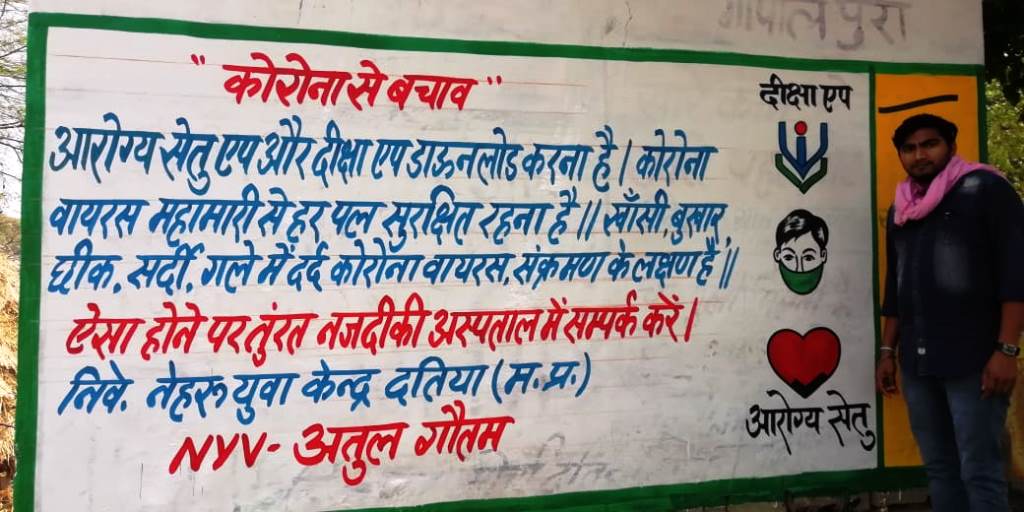 गोपालपुरा
"कोरोना से बचाव"
आरोग्य सेतु एप और दीक्षा एप डाऊनलोड करना है। कोरोना
वायरस महामारी से हर पल सुरक्षित रहना है॥ खाँसी, बुखार,
छीक, सर्दी, गले में दर्द कोरोना वायरस, संक्रमण के लक्षण हैं॥
ऐसा होने पर तुंरत नजदीकी अस्पताल में सम्पर्क करें।
निवे. नेहरू युवा केन्द्र दतिया (म.प्र.)
NYV- अतुल गौतम
दीक्षा एप
आरोग्य सेतु